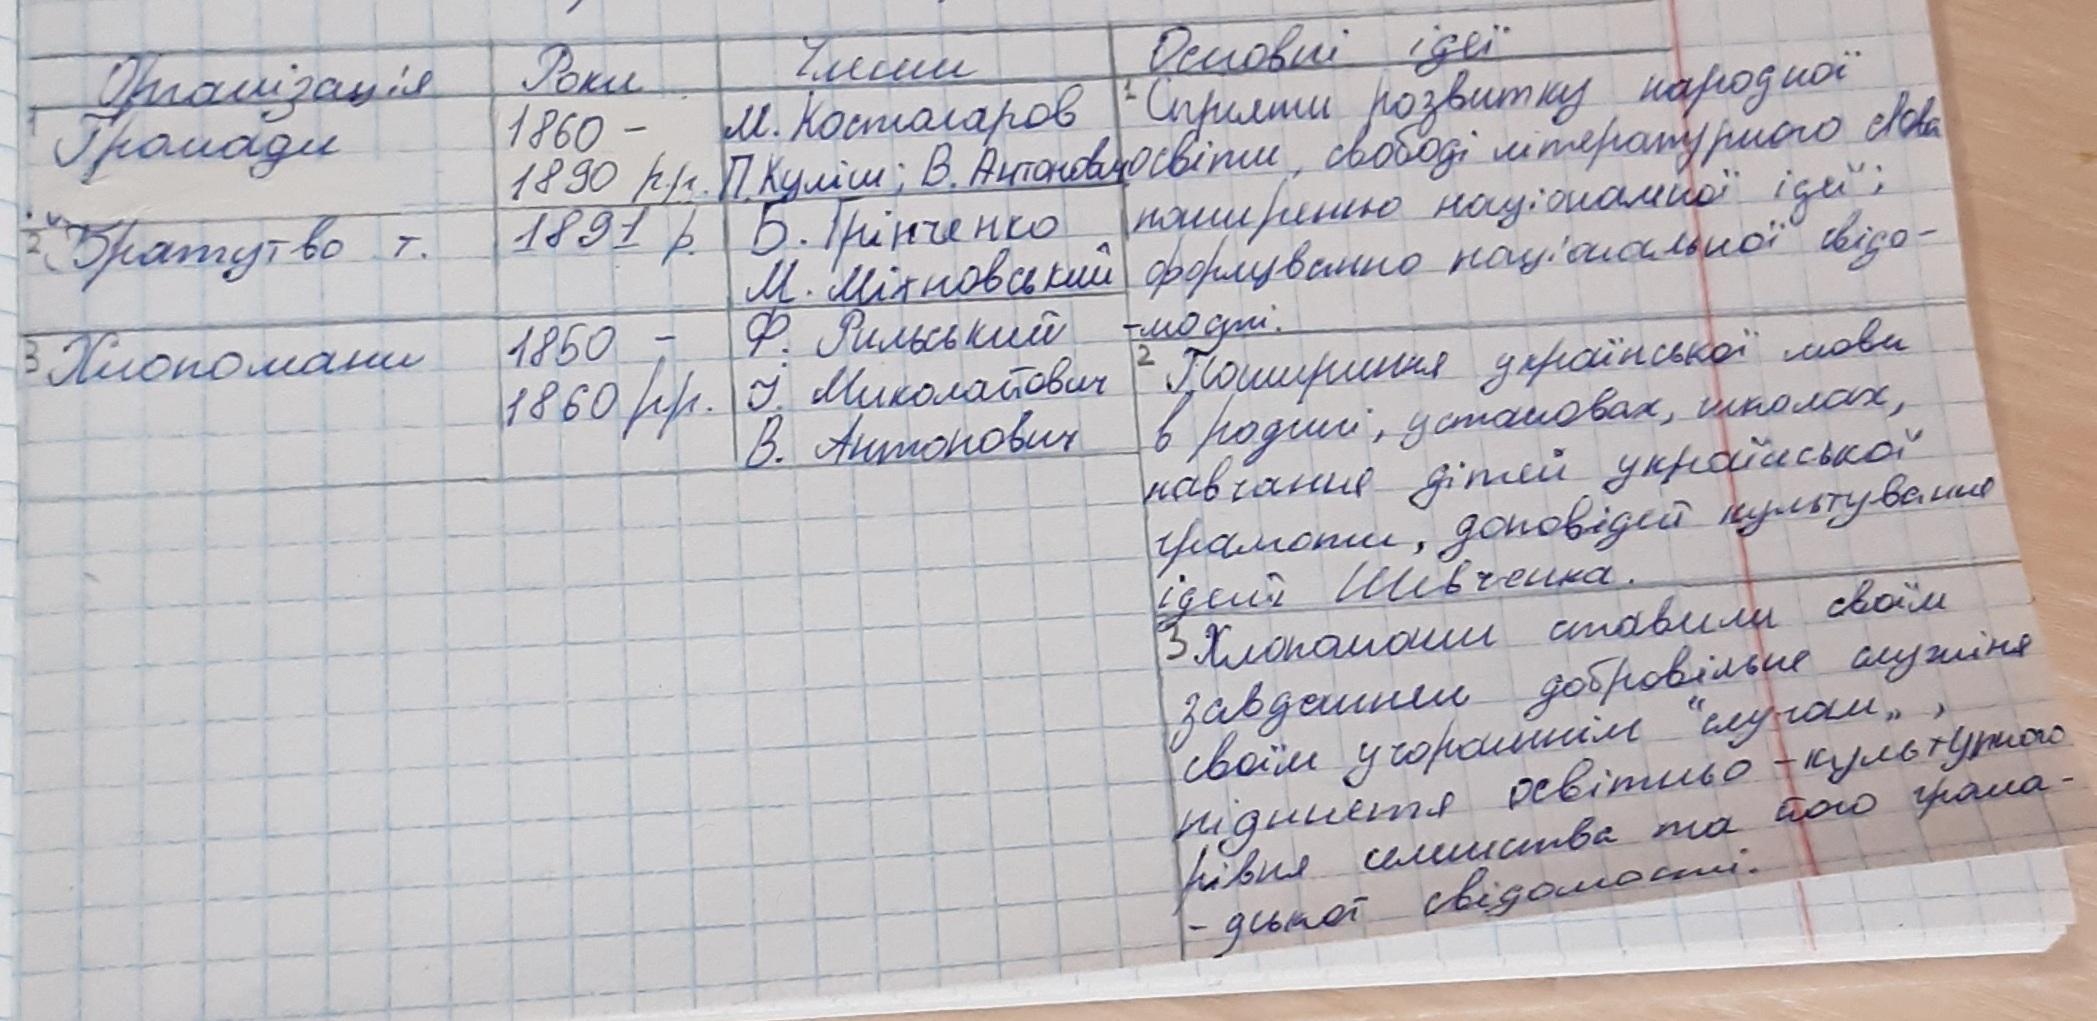 Організація Роки Члени Основні ідеї
1 Громади 1860 - М. Костомаров 1 Сприяти розвитку народної
1890 рр. П. Куліш; В. Антонович освіти, свободі літературного слова
2 "Братутво т. 1891 р. Б. Грінченко поширенню національної ідеї;
М. Міхновський формуванню національної свідо-
3 Хлопомани 1850 - Ф. Рильський -мості.
1860 рр. Й. Миколайович 2 Поширення української мови
В. Антонович в родині, установах, школах,
навчання дітей української
грамоти, доповідей культування
ідей Шевченка.
3 Хлопомани ставили своїм
завданнем добровільне служіня
своїм учорашнім "слугам",
підняття освітньо-культурного
рівня селянства та його грома-
-дської свідомості.